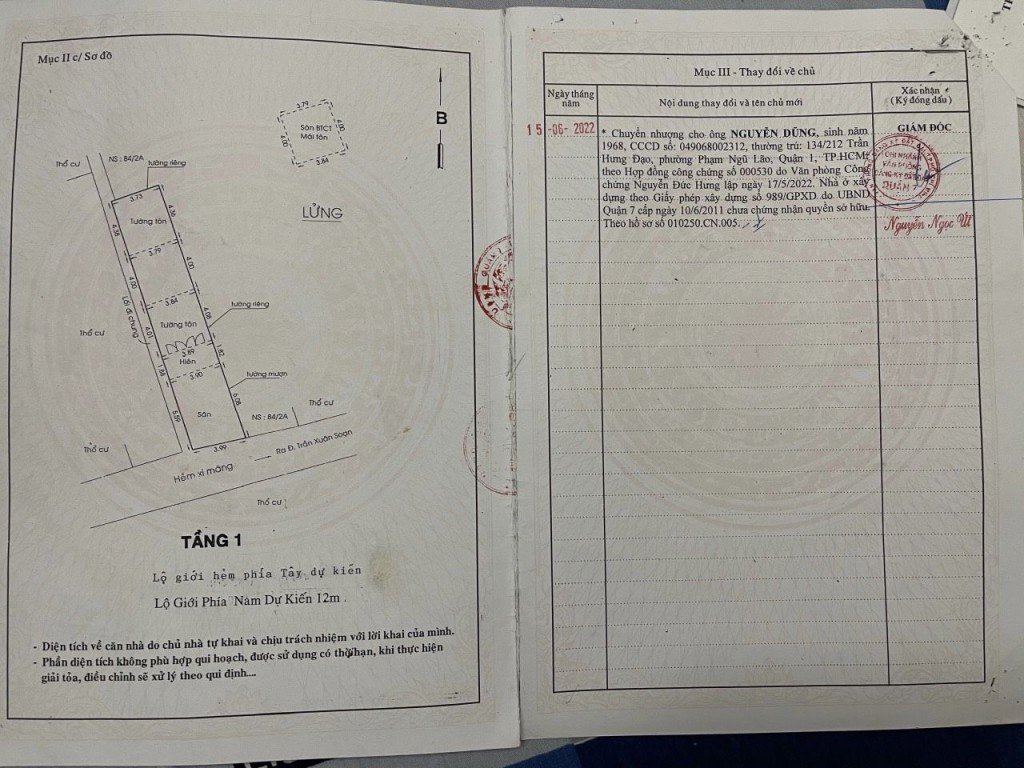 Mục II c/ Sơ đồ
B
3.79
Sân BTCT
Mái tôn
4.00
4.00
3.84
LỬNG
Thổ cư
NS : 84/2A
tường riêng
3.73
Tường tôn
4.36
4.38
3.79
4.00
4.00
3.84
Lối đi chung
Tường tôn
4.08
tường riêng
4.01
Thổ cư
3.89
Hiên
1.82
1.88
3.90
tường mượn
6.08
5.59
Sân
NS : 84/2A
Thổ cư
Thổ cư
3.99
Ra Đ. Trần Xuân Soạn
Hẻm xi măng
Thổ cư
TẦNG 1
Lộ giới hẻm phía Tây dự kiến
Lộ Giới Phía Nam Dự Kiến 12m
- Diện tích về căn nhà do chủ nhà tự khai và chịu trách nhiệm với lời khai của mình.
- Phần diện tích không phù hợp qui hoạch, được sử dụng có thời hạn, khi thực hiện
giải tỏa, điều chỉnh sẽ xử lý theo qui định....
Mục III - Thay đổi về chủ
Ngày tháng
năm
Nội dung thay đổi và tên chủ mới
Xác nhận
(Ký đóng dấu)
15-06-2022
* Chuyển nhượng cho ông NGUYỄN DŨNG, sinh năm
1968, CCCD số: 049068002312, thường trú: 134/212 Trần
Hưng Đạo, phường Phạm Ngũ Lão, Quận 1, TP.HCM;
theo Hợp đồng công chứng số 000530 do Văn phòng Công
chứng Nguyễn Đức Hưng lập ngày 17/5/2022. Nhà ở xây
dựng theo Giấy phép xây dựng số 989/GPXD do UBND
Quận 7 cấp ngày 10/6/2011 chưa chứng nhận quyền sở hữu.
Theo hồ sơ số 010250.CN.005.
GIÁM ĐỐC
CHI NHÁNH
VĂN PHÒNG
ĐĂNG KÝ ĐẤT ĐAI
QUẬN 7
Nguyễn Ngọc Út